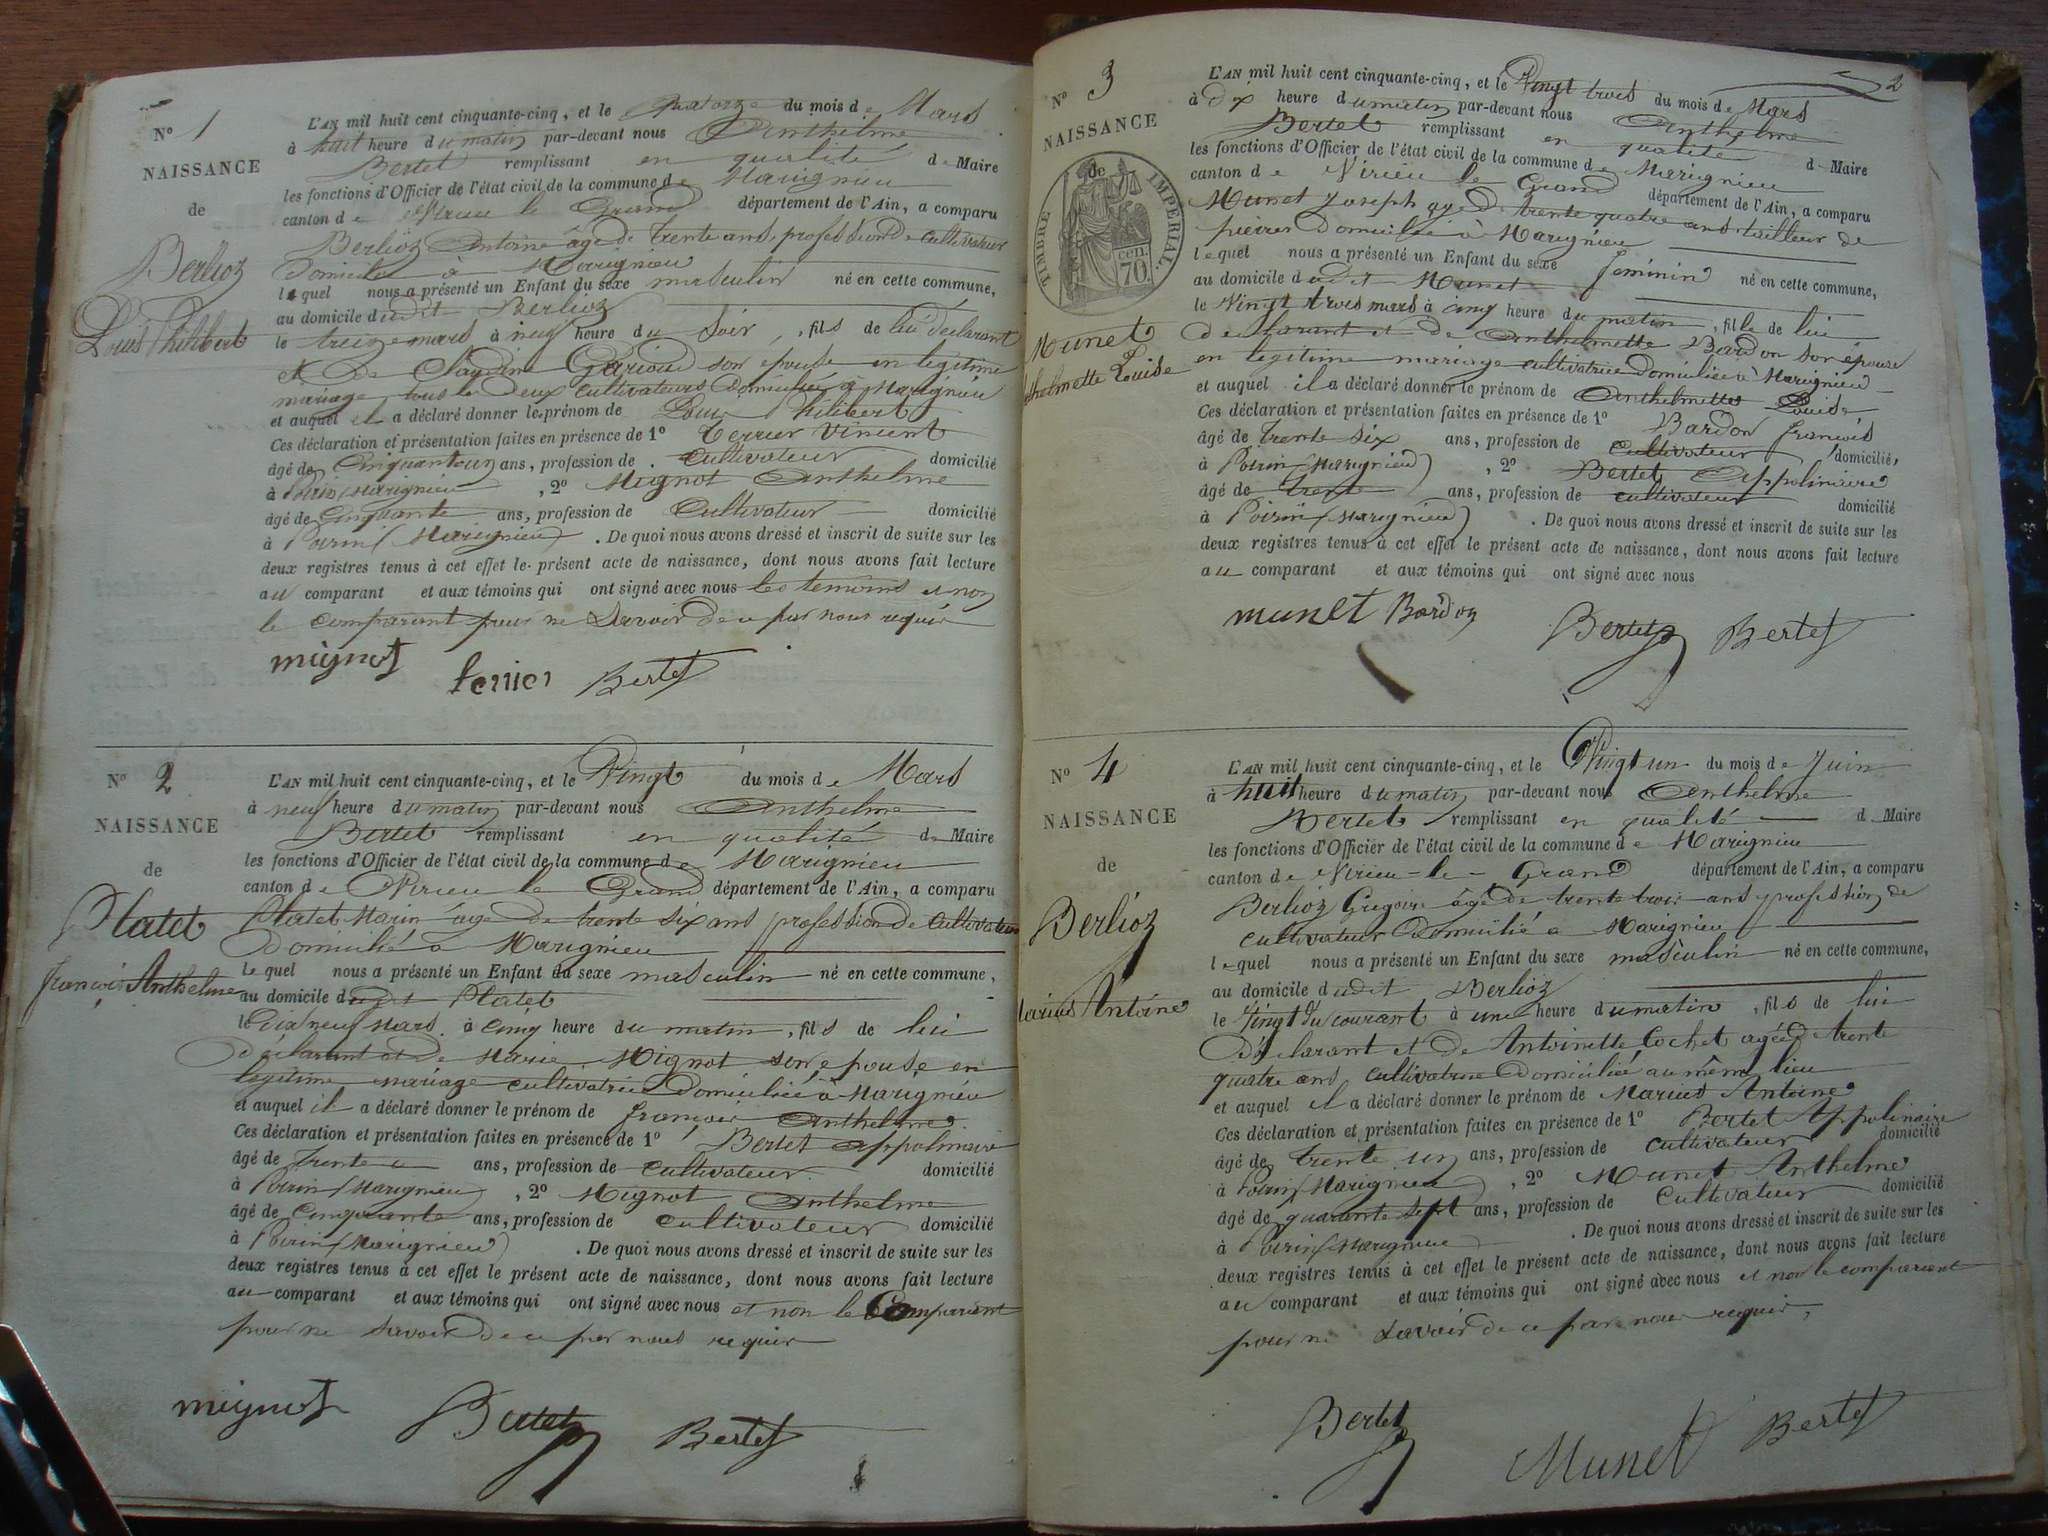 N° 1
NAISSANCE
de
Berlioz
Louis Philibert
L'AN mil huit cent cinquante-cinq, et le quatorze du mois de Mars
à huit heure du matin par-devant nous Anthelme
Bertet remplissant en qualité de Maire
les fonctions d'Officier de l'état civil de la commune de Marignieu
canton de Virieu le Grand département de l'Ain, a comparu
Berlioz Antoine âgé de trente ans, profession de cultivateur
domicilié à Marignieu
lequel nous a présenté un Enfant du sexe masculin né en cette commune,
au domicile dudit Berlioz
le treize mars à neuf heure du soir, fils de lui déclarant
et de son epouse en legitime
mariage tous les deux cultivateurs domiciliés à Marignieu
et auquel il a déclaré donner le prénom de Louis Philibert
Ces déclaration et présentation faites en présence de 1° Terrier Vincent
âgé de Cinquante un ans, profession de cultivateur domicilié
à Poirin (Marignieu) , 2° Mignot Anthelme
âgé de Cinquante ans, profession de Cultivateur domicilié
à Poirin (Marignieu) . De quoi nous avons dressé et inscrit de suite sur les
deux registres tenus à cet effet le présent acte de naissance, dont nous avons fait lecture
au comparant et aux témoins qui ont signé avec nous les temoins et non
le comparant pour ne savoir de ce par nous requis
mignot terrier Bertet
N° 2
NAISSANCE
de
Platet
françois Anthelme
L'AN mil huit cent cinquante-cinq, et le Vingt du mois de Mars
à neuf heure du matin par-devant nous Anthelme
Bertet remplissant en qualité de Maire
les fonctions d'Officier de l'état civil de la commune de Marignieu
canton de Virieu le Grand département de l'Ain, a comparu
Platet Marin âgé de trente six ans profession de cultivateur
domicilié à Marignieu
lequel nous a présenté un Enfant du sexe masculin né en cette commune,
au domicile dudit Platet
le Dix neuf Mars à Cinq heure du matin, fils de lui
déclarant et de Marie Mignot son epouse en
legitime mariage cultivatrice domiciliée à Marignieu
et auquel il a déclaré donner le prénom de françois Anthelme
Ces déclaration et présentation faites en présence de 1° Bertet appolinaire
âgé de trente ans, profession de cultivateur domicilié
à Poirin (Marignieu) , 2° Mignot Anthelme
âgé de cinquante ans, profession de cultivateur domicilié
à Poirin (Marignieu) . De quoi nous avons dressé et inscrit de suite sur les
deux registres tenus à cet effet le présent acte de naissance, dont nous avons fait lecture
au comparant et aux témoins qui ont signé avec nous et non le Comparant
pour ne savoir de ce par nous requis
mignot Bertet Bertet
2
N° 3
NAISSANCE
de
TIMBRE IMPERIAL.
70 cen.
Munet
thelmette Louise
L'AN mil huit cent cinquante-cinq, et le Vingt trois du mois de Mars
à dix heure du matin par-devant nous Anthelme
Bertet remplissant en qualité de Maire
les fonctions d'Officier de l'état civil de la commune de Marignieu
canton de Virieu le Grand département de l'Ain, a comparu
Munet Joseph agé de trente quatre ans tailleur de
pierres domicilié à Marignieu
lequel nous a présenté un Enfant du sexe feminin né en cette commune,
au domicile dudit Munet
le Vingt trois mars à cinq heure du matin, fille de lui
declarant et de Anthelmette Bardon son épouse
en legitime mariage cultivatrice domiciliée à Marignieu
et auquel il a déclaré donner le prénom de Anthelmette Louise
Ces déclaration et présentation faites en présence de 1° Bardon francois
âgé de trente six ans, profession de Cultivateur domicilié,
à Poirin (Marignieu) , 2° Bertet Appolinaire
âgé de trente ans, profession de cultivateur domicilié
à Poirin (Marignieu) . De quoi nous avons dressé et inscrit de suite sur les
deux registres tenus à cet effet le présent acte de naissance, dont nous avons fait lecture
au comparant et aux témoins qui ont signé avec nous
munet Bardon Bertet Bertet
N° 4
NAISSANCE
de
Berlioz
Marius Antoine
L'AN mil huit cent cinquante-cinq, et le Vingt un du mois de Juin
à huit heure du matin par-devant nous Anthelme
Bertet remplissant en qualité de Maire
les fonctions d'Officier de l'état civil de la commune de Marignieu
canton de Virieu-le-Grand département de l'Ain, a comparu
Berlioz Gregoire âgé de trente trois ans profession de
cultivateur domicilié à Marignieu
lequel nous a présenté un Enfant du sexe masculin né en cette commune,
au domicile dudit Berlioz
le vingt du courant à une heure du matin, fils de lui
Déclarant et de Antoinette Cochet agée de trente
quatre ans cultivatrice domiciliée au même lieu
et auquel il a déclaré donner le prénom de Marius Antoine
Ces déclaration et présentation faites en présence de 1° Bertet Appolinaire
âgé de trente un ans, profession de cultivateur domicilié
à Poirin (Marignieu) , 2° Munet Anthelme
âgé de quarante sept ans, profession de Cultivateur domicilié
à Poirin (Marignieu) . De quoi nous avons dressé et inscrit de suite sur les
deux registres tenus à cet effet le présent acte de naissance, dont nous avons fait lecture
au comparant et aux témoins qui ont signé avec nous et non le comparant
pour ne savoir de ce par nous requis,
Bertet Munet Bertet